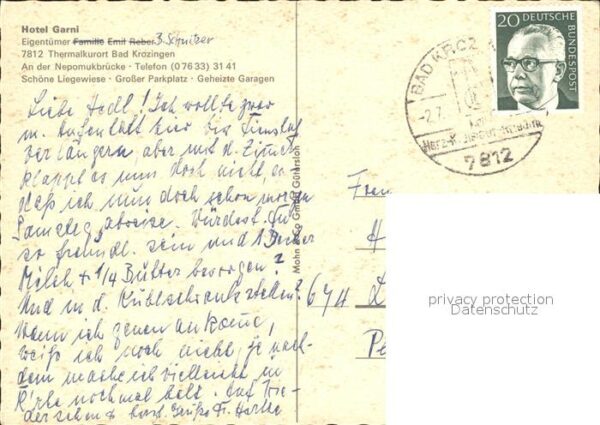 Hotel Garni
Eigentümer Familie Emil Reber J. Schnitzer
7812 Thermalkurort Bad Krozingen
An der Nepomukbrücke · Telefon (0 76 33) 31 41
Schöne Liegewiese · Großer Parkplatz · Geheizte Garagen
Liebe Hedl! Ich wollte zwar
m. Aufenthalt hier bis Dienstag
verlängern, aber mit d. Zimmer
klappt es nun doch nicht, so
daß ich nun doch schon morgen
Samstag abreise. Würdest Du
so freundl. sein und 1 Becher
Milch + 1/4 Butter besorgen?
Und in d. Kühlschrank stellen?
Wann ich genau ankomme,
weiß ich noch nicht, je nach-
dem mache ich vielleicht in
K'ruhe nochmal halt. Auf Wie-
dersehen & herzl. Grüße Fr.
Mohn & Co GmbH Gütersloh
20 DEUTSCHE
BUNDESPOST
BAD KROZ
-2.7.
7812
674
privacy protection
Datenschutz